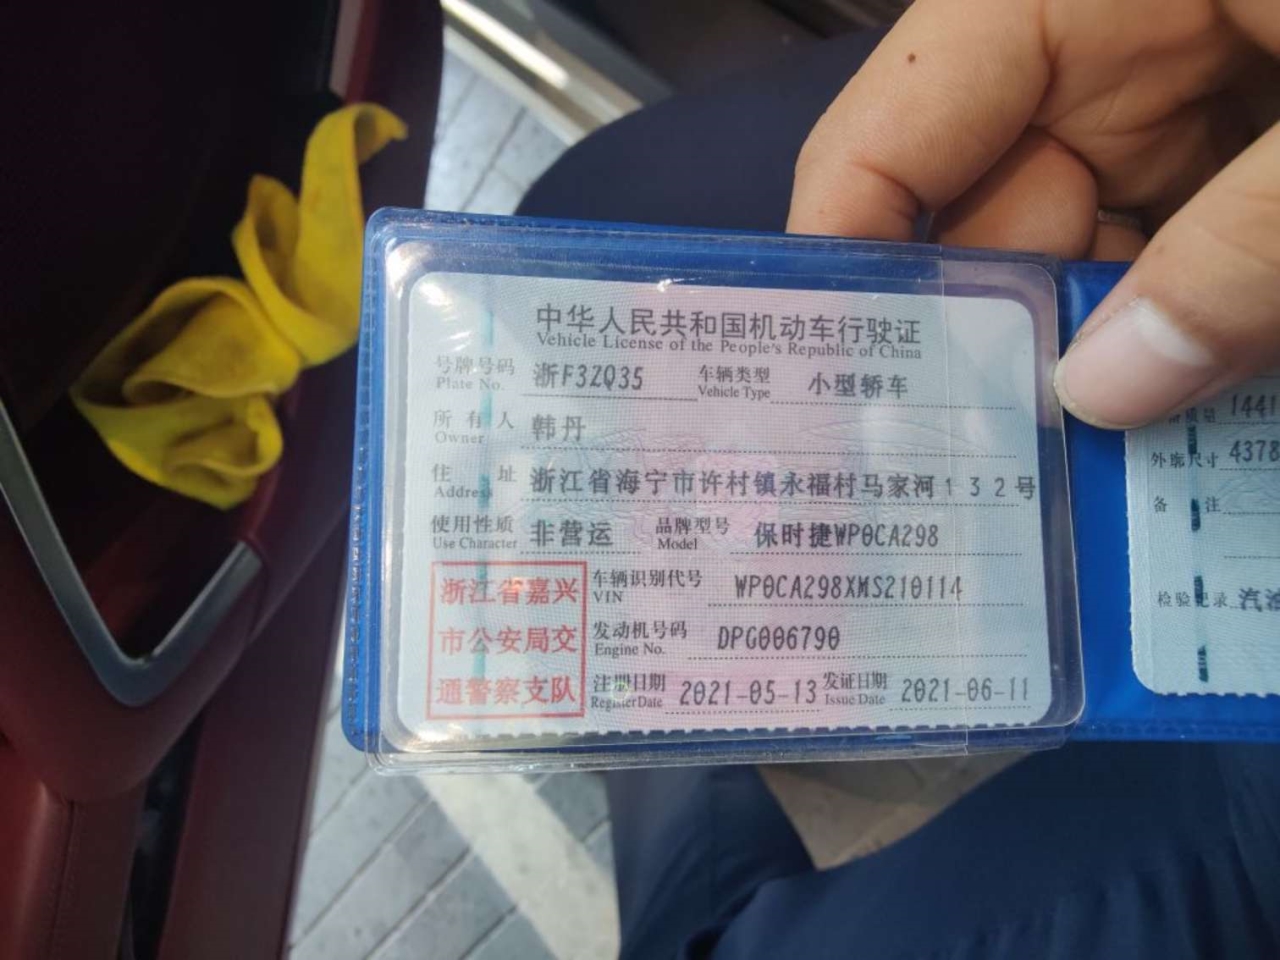 中华人民共和国机动车行驶证
Vehicle License of the People's Republic of China
号牌号码 浙F3ZQ35 车辆类型 小型轿车
Plate No. Vehicle Type
所有人 韩丹
Owner
住址 浙江省海宁市许村镇永福村马家河132号
Address
使用性质 非营运 品牌型号 保时捷WP0CA298
Use Character Model
浙江省嘉兴
市公安局交
通警察支队
车辆识别代号 WP0CA298XMS210114
VIN
发动机号码 DPG006790
Engine No.
注册日期 2021-05-13 发证日期 2021-06-11
Register Date Issue Date
质量 1441
外廓尺寸 4378
备注
检验记录 汽